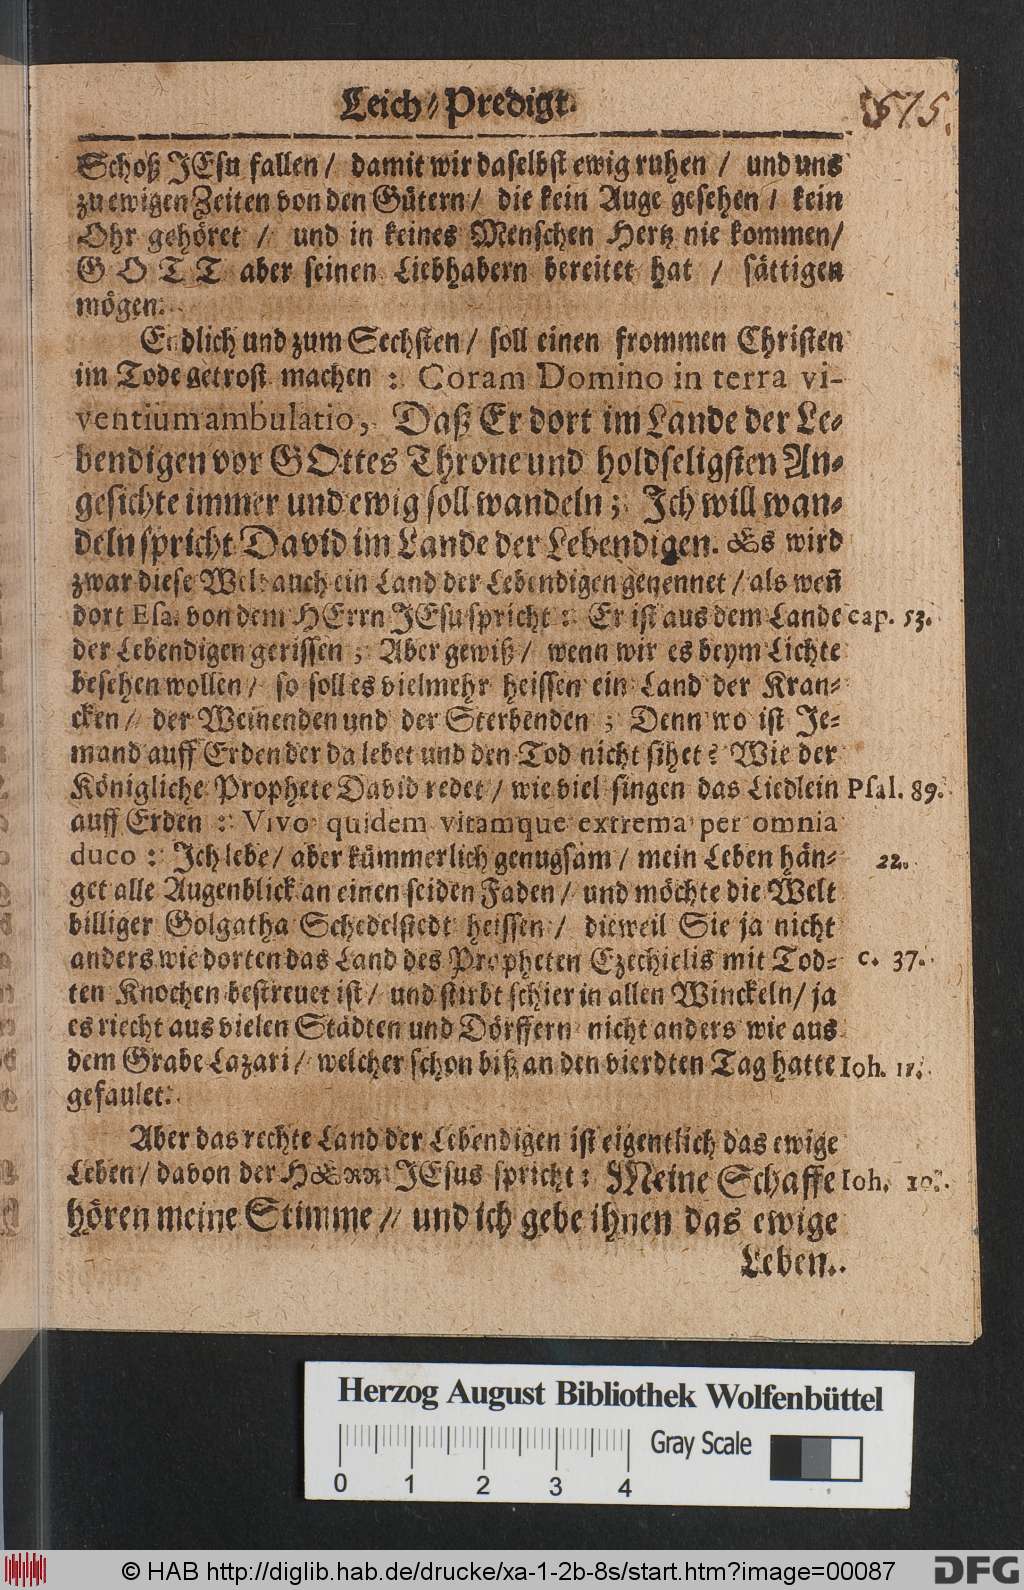 Leich-Predigt.
575.
Schoß JEsu fallen / damit wir daselbst ewig ruhen / und uns
zu ewigen Zeiten von den Gütern / die kein Auge gesehen / kein
Ohr gehöret / und in keines Menschen Hertz nie kommen /
GOTT aber seinen Liebhabern bereitet hat / sättigen
mögen.
Endlich und zum Sechsten / soll einen frommen Christen
im Tode getrost machen : Coram Domino in terra vi-
ventium ambulatio, Daß Er dort im Lande der Le-
bendigen vor GOttes Throne und holdseligsten An-
gesichte immer und ewig soll wandeln ; Jch will wan-
deln spricht David im Lande der Lebendigen. Es wird
zwar diese Welt auch ein Land der Lebendigen genennet / als weñ
dort Esa. von dem HErrn JEsu spricht : Er ist aus dem Lande cap. 53.
der Lebendigen gerissen ; Aber gewiß / wenn wir es beym Lichte
besehen wollen / so soll es vielmehr heissen ein Land der Kran-
cken / der Weinenden und der Sterbenden ; Denn wo ist Je-
mand auff Erden der da lebet und den Tod nicht sihet ? Wie der
Königliche Prophete David redet / wie viel singen das Liedlein Psal. 89.
auff Erden : Vivo quidem vitamque extrema per omnia
duco : Jch lebe / aber kümmerlich genugsam / mein Leben hän- 22.
get alle Augenblick an einen seiden Faden / und möchte die Welt
billiger Golgatha Schedelstedt heissen / dieweil Sie ja nicht
anders wie dorten das Land des Propheten Ezechielis mit Tod- c. 37.
ten Knochen bestreuet ist / und stirbt schier in allen Winckeln / ja
es riecht aus vielen Städten und Dörffern nicht anders wie aus
dem Grabe Lazari / welcher schon biß an den vierdten Tag hatte Ioh. 11.
gefaulet.
Aber das rechte Land der Lebendigen ist eigentlich das ewige
Leben / davon der HERR JEsus spricht : Meine Schaffe Ioh. 10.
hören meine Stimme / und ich gebe ihnen das ewige
Leben.
Herzog August Bibliothek Wolfenbüttel
Gray Scale
0 1 2 3 4
© HAB http://diglib.hab.de/drucke/xa-1-2b-8s/start.htm?image=00087
DFG